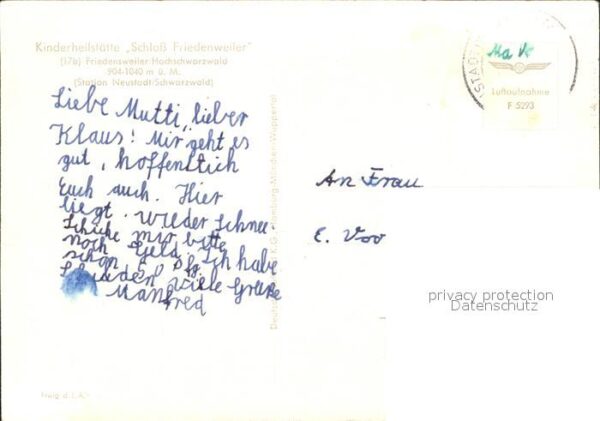 Kinderheilstätte „Schloß Friedenweiler"
(17b) Friedensweiler/Hochschwarzwald
904-1040 m ü. M.
(Station Neustadt/Schwarzwald)
Liebe Mutti, lieber
Klaus! Mir geht es
gut, hoffentlich
Euch auch. Hier
liegt wieder Schnee.
Schicke mir bitte
noch Geld. Ich habe
schon 5
viele Grüße
Manfred
Luftaufnahme
F 5293
An Frau
E. Voo
privacy protection
Datenschutz